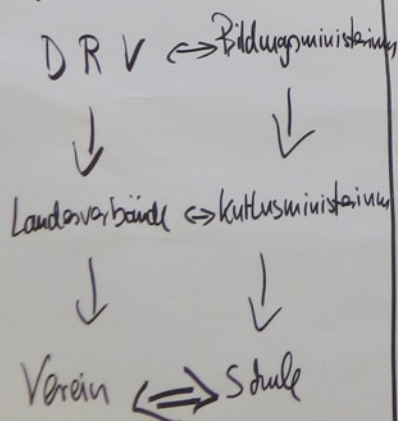 DRV ⇔ Bildungsministerium
Landesverbände ⇔ Kultusministerium
Verein ⇔ Schule